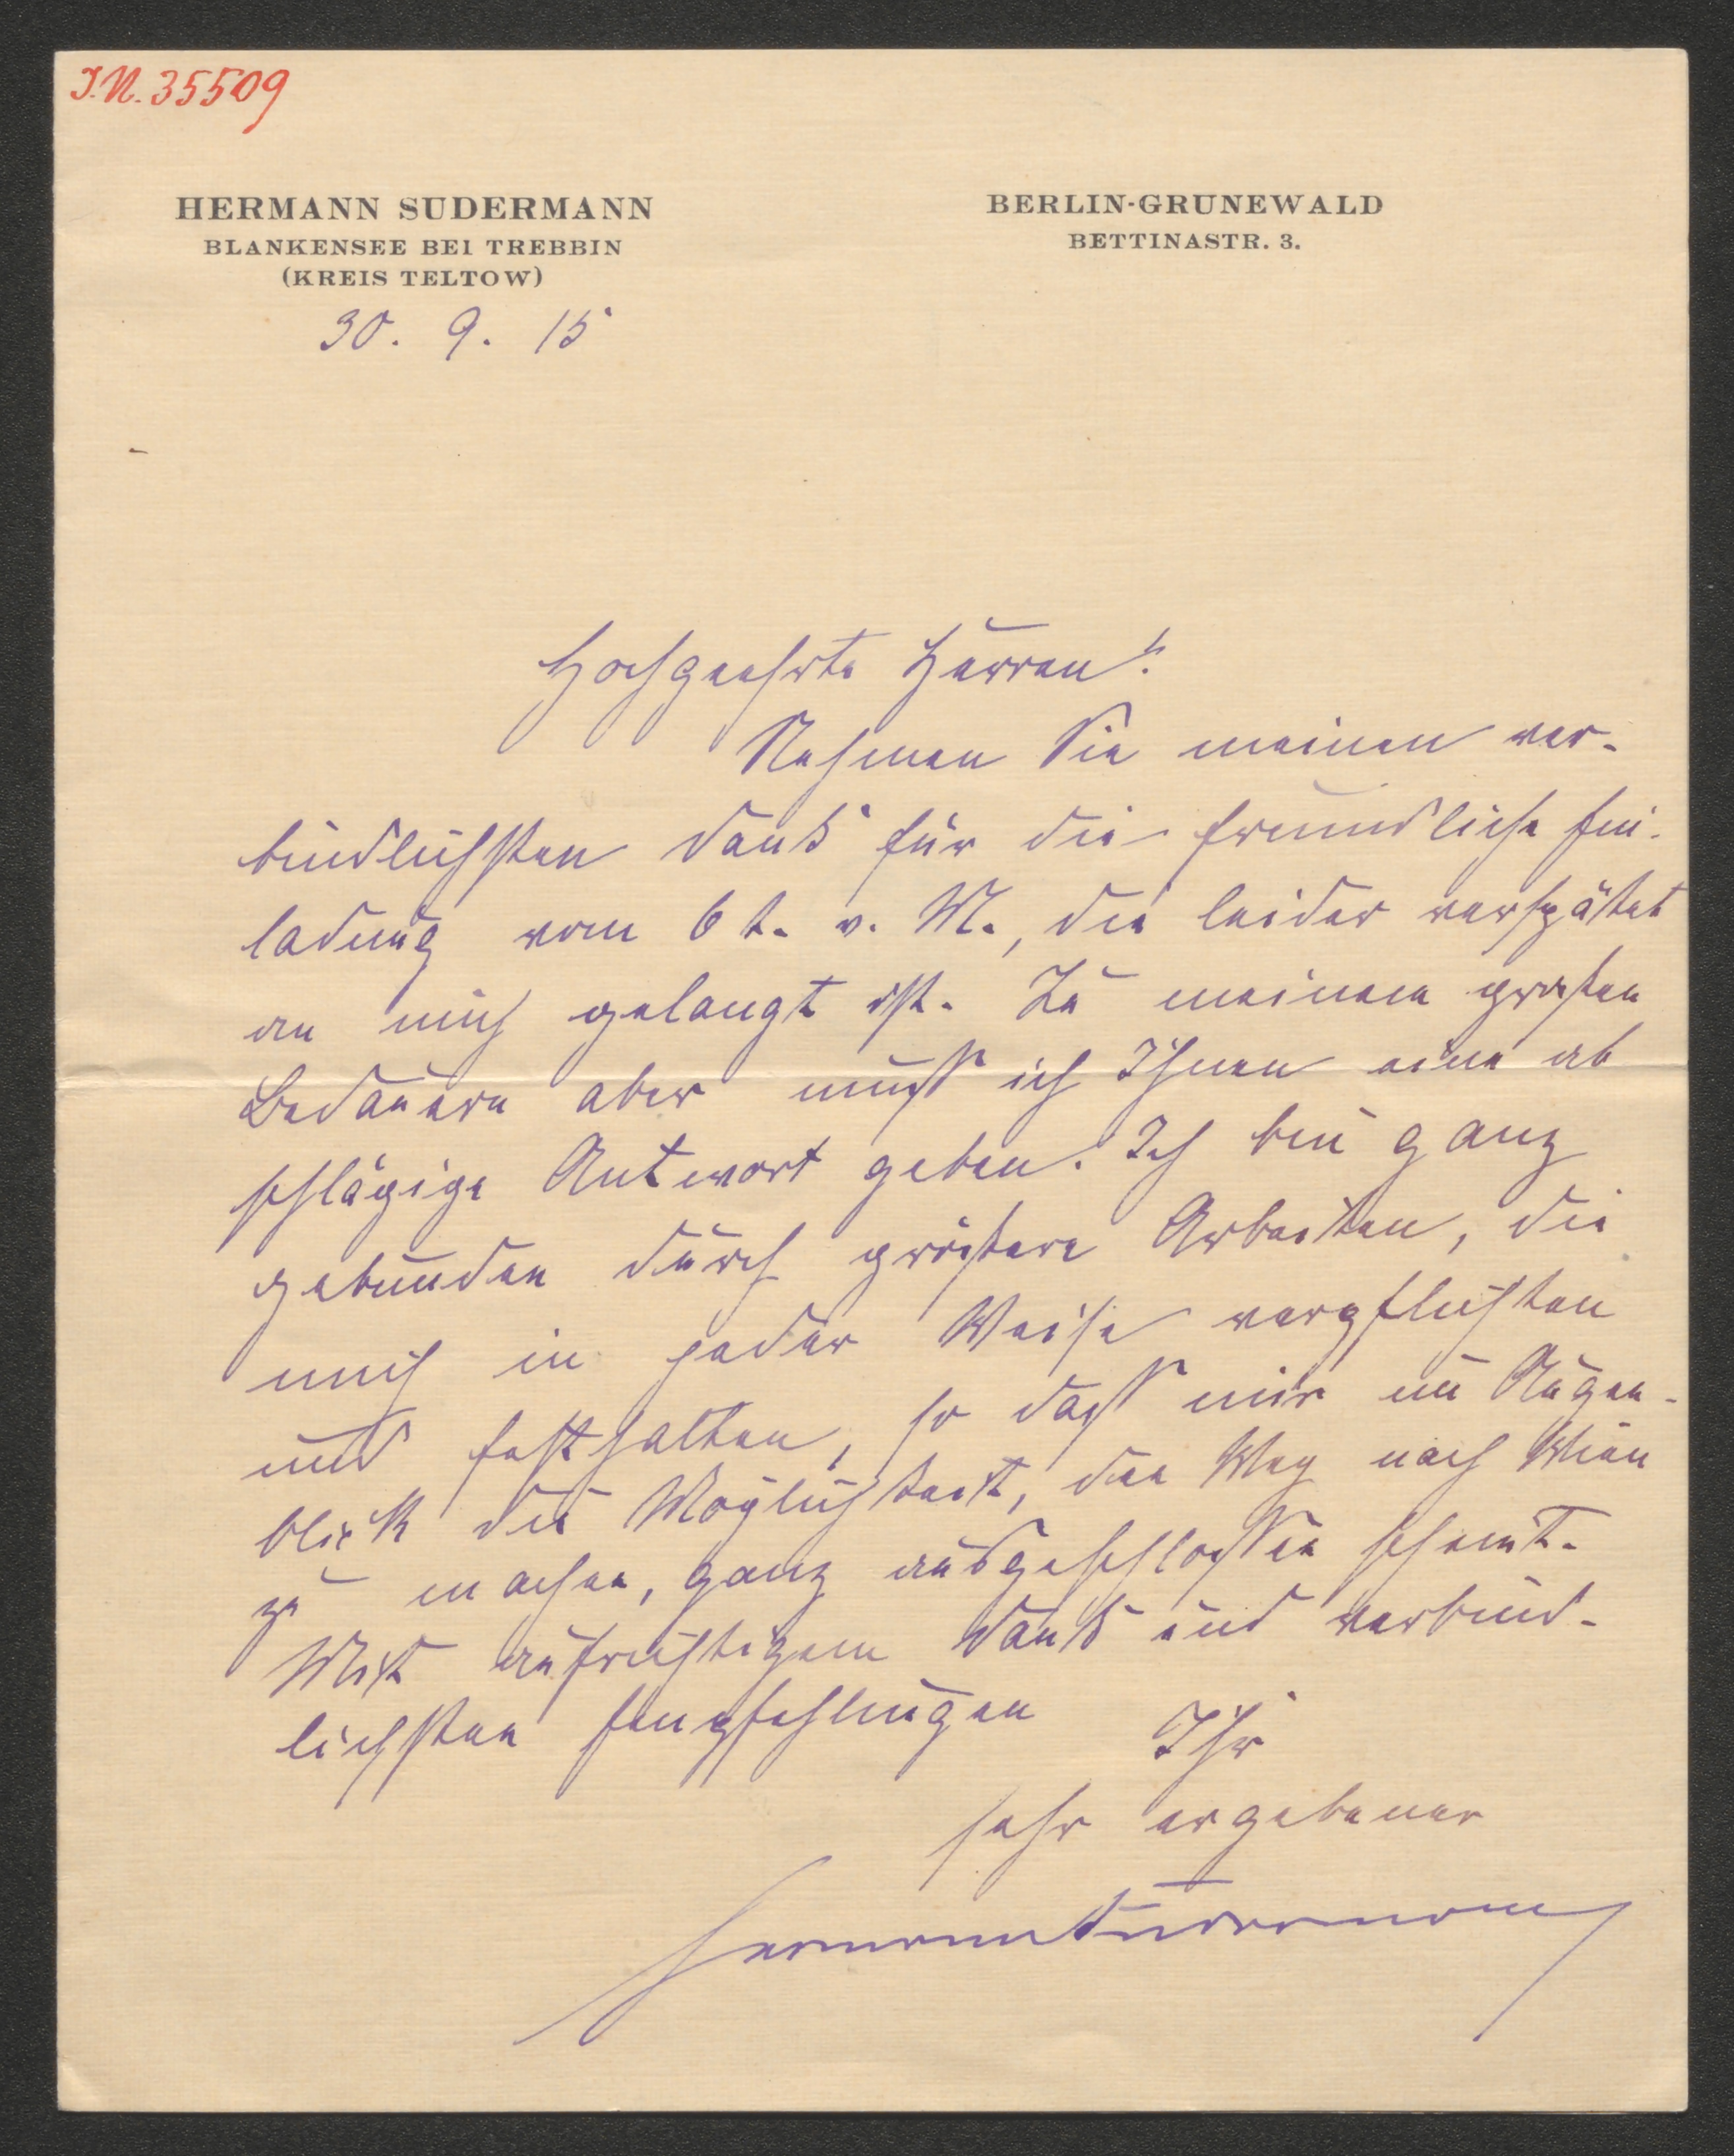 I.N. 35509
HERMANN SUDERMANN
BLANKENSEE BEI TREBBIN
(KREIS TELTOW)
BERLIN-GRUNEWALD
BETTINASTR. 3.
30. 9. 15
Hochgeehrte Herren!
Nehmen Sie meinen ver-
bindlichsten Dank für die freundliche Ein-
ladung vom 6 t. v. M., die leider verspätet
an mich gelangt ist. Zu meinem großen
Bedauern aber muß ich Ihnen eine ab
schlägige Antwort geben. Ich bin ganz
gebunden durch größere Arbeiten, die
mich in jeder Weise verpflichten
und festhalten, so daß mir im Augen-
blick die Möglichkeit, den Weg nach Wien
zu machen, ganz ausgeschlossen scheint.
Mit aufrichtigem Dank und verbind-
lichsten Empfehlungen
Ihr
sehr ergebener
Hermann Sudermann